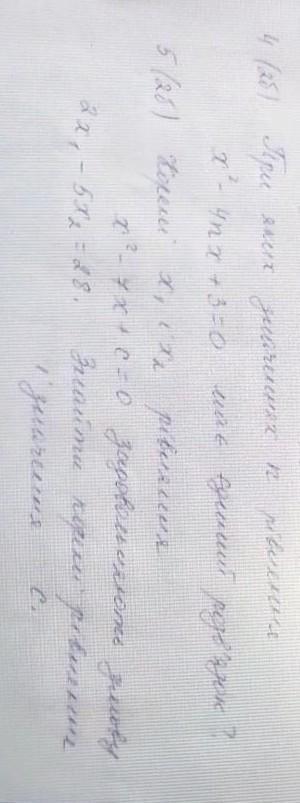 4 (2б) При яких значеннях n рівняння
x² - 4nx + 3 = 0 має єдиний розв'язок?
5 (2б) Корені x₁ і x₂ рівняння
x² - 7x + c = 0 задовольняють умову
2x₁ - 5x₂ = 28. Знайти корені рівняння
і значення c.